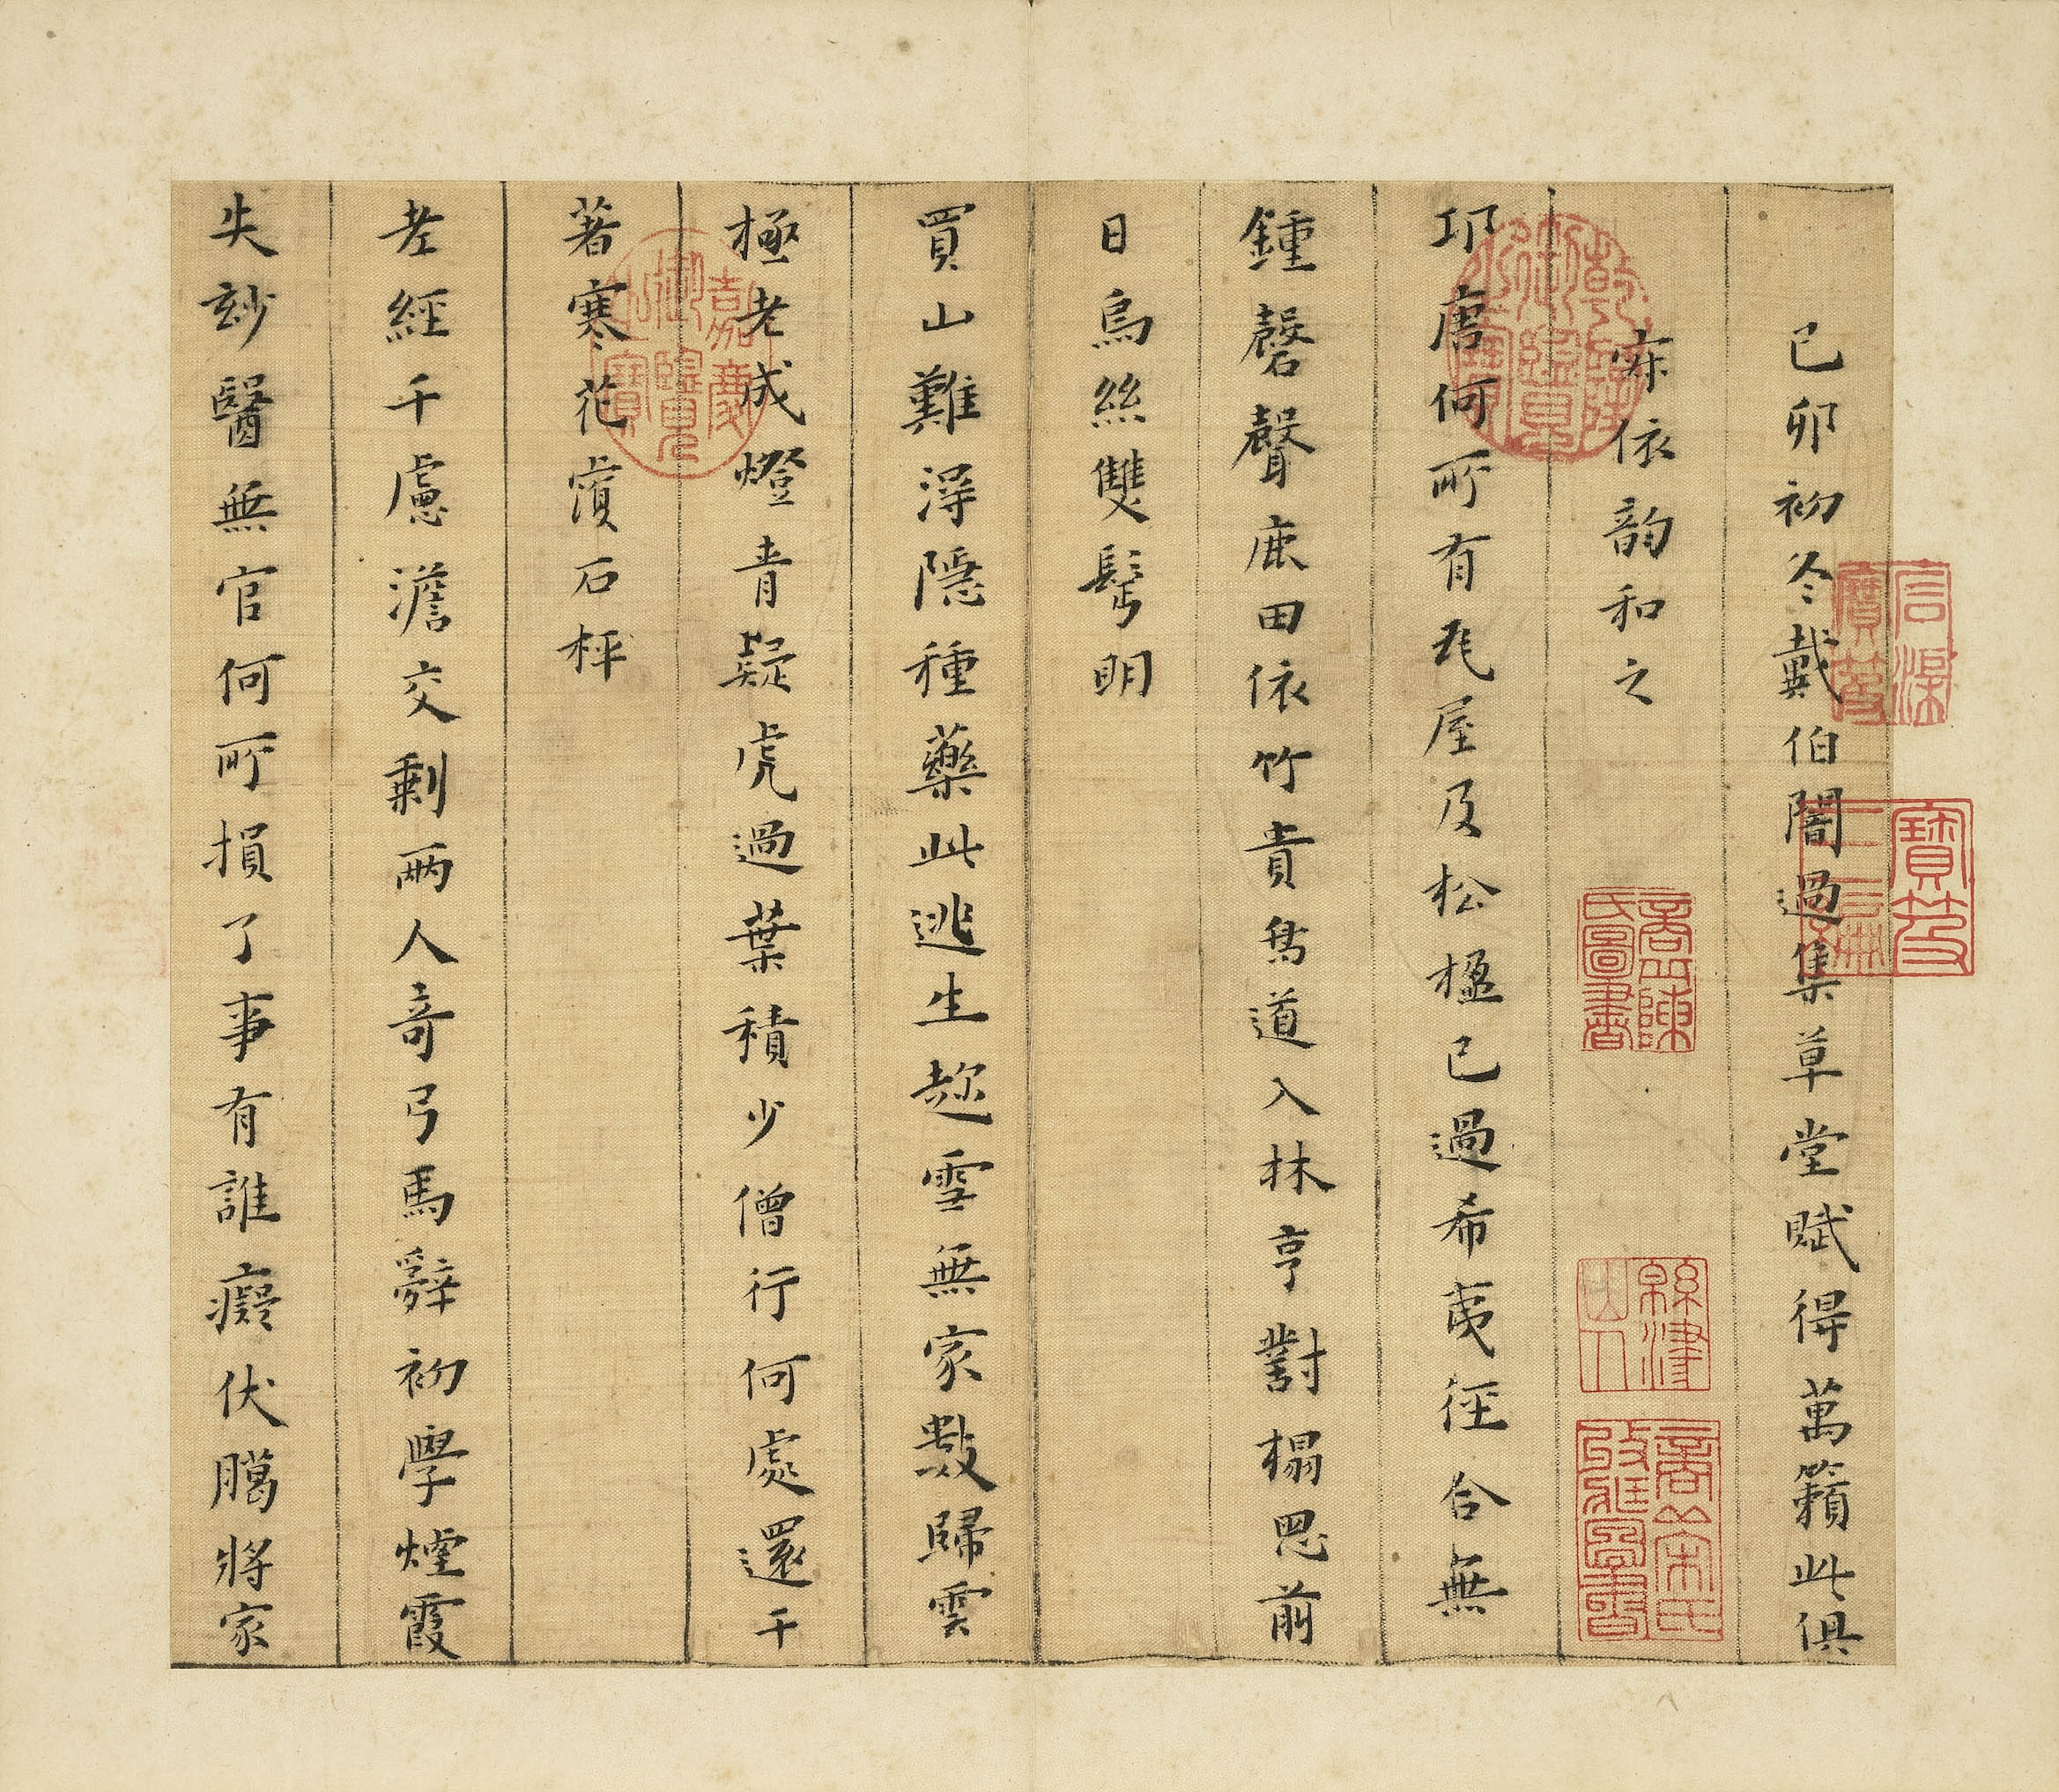 己卯初冬戴伯闇過集草堂賦得萬籟此俱
寂依韵和之
邛唐何所有瓦屋及松楹已過希夷徑合無
鍾磬聲鹿田依竹貴舄道入林亨對榻思前
日烏絲雙髩明
買山難淂隱種藥此逃生趂雪無家數歸雲
極老成燈青疑虎過葉積少僧行何處還干
著寒花蕷石枰
老經千慮澹交剩兩人奇弓馬辭初學煙霞
失玅醫無官何所損了事有誰癡伏臈將家